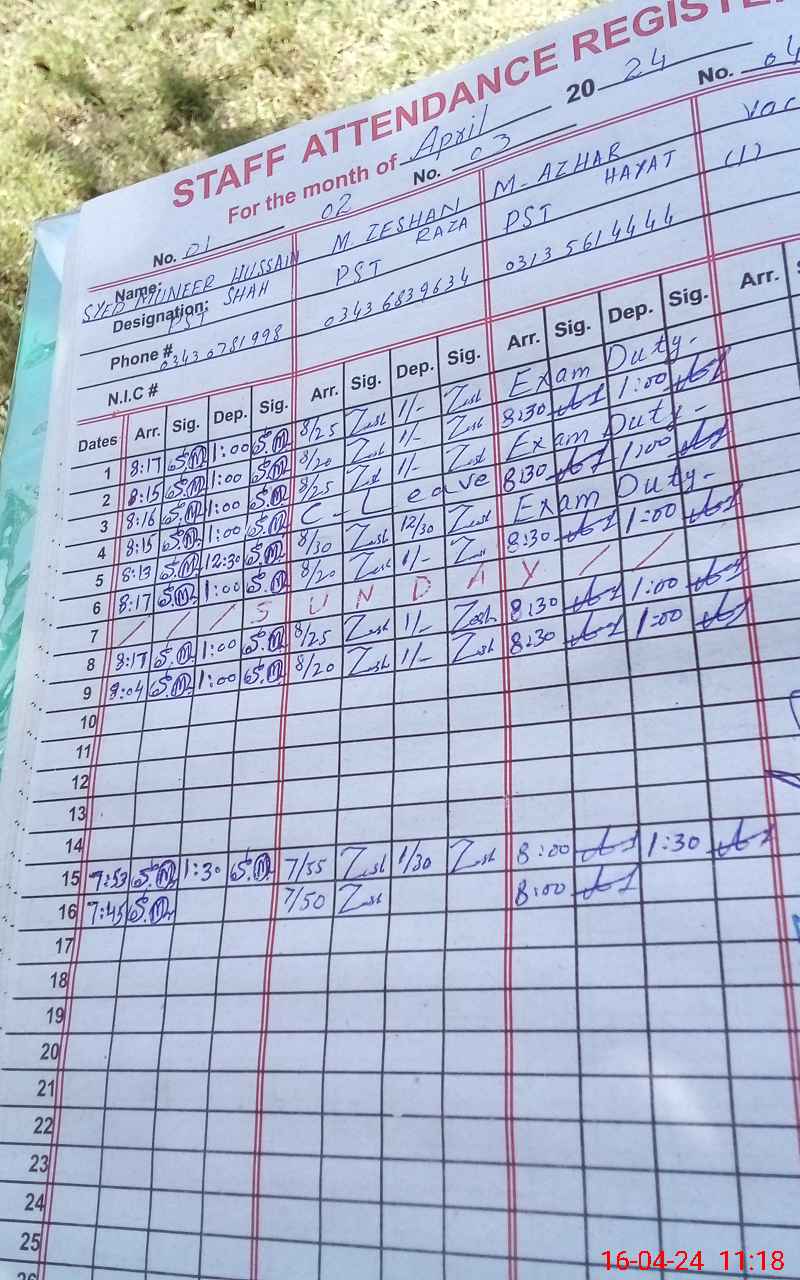 STAFF ATTENDANCE REGISTE
For the month of April 20 24
No. 01 02 No. 03 No. 04
Name: SYED MUNEER HUSSAIN SHAH M. ZESHAN RAZA M- AZHAR HAYAT vac
Designation: PST PST PST (1)
Phone # 0343 0781998 0343 6839634 0313 5614444
N.I.C #
Dates Arr. Sig. Dep. Sig. Arr. Sig. Dep. Sig. Arr. Sig. Dep. Sig. Arr. S
1 8:17 S.M 1:00 S.M 8/25 Zest 1/- Zest Exam Duty-
2 8:15 S.M 1:00 S.M 8/20 Zest 1/- Zest 8:30 1:00
3 8:16 S.M 1:00 S.M 8/25 Zest 1/- Zest Exam Duty-
4 8:15 S.M 1:00 S.M C-Leave 8:30 1:00
5 8:13 S.M 12:30 S.M 8/30 Zest 12/30 Zest Exam Duty-
6 8:17 S.M 1:00 S.M 8/20 Zest 1/- Zest 8:30 1:00
7 / / / S U N D A Y / /
8 8:17 S.M 1:00 S.M 8/25 Zest 1/- Zest 8:30 1:00
9 8:04 S.M 1:00 S.M 8/20 Zest 1/- Zest 8:30 1:00
10
11
12
13
14
15 7:53 S.M 1:30 S.M 7/55 Zest 1/30 Zest 8:00 1:30
16 7:45 S.M 7/50 Zest 8:00
17
18
19
20
21
22
23
24
25
26
16-04-24 11:18